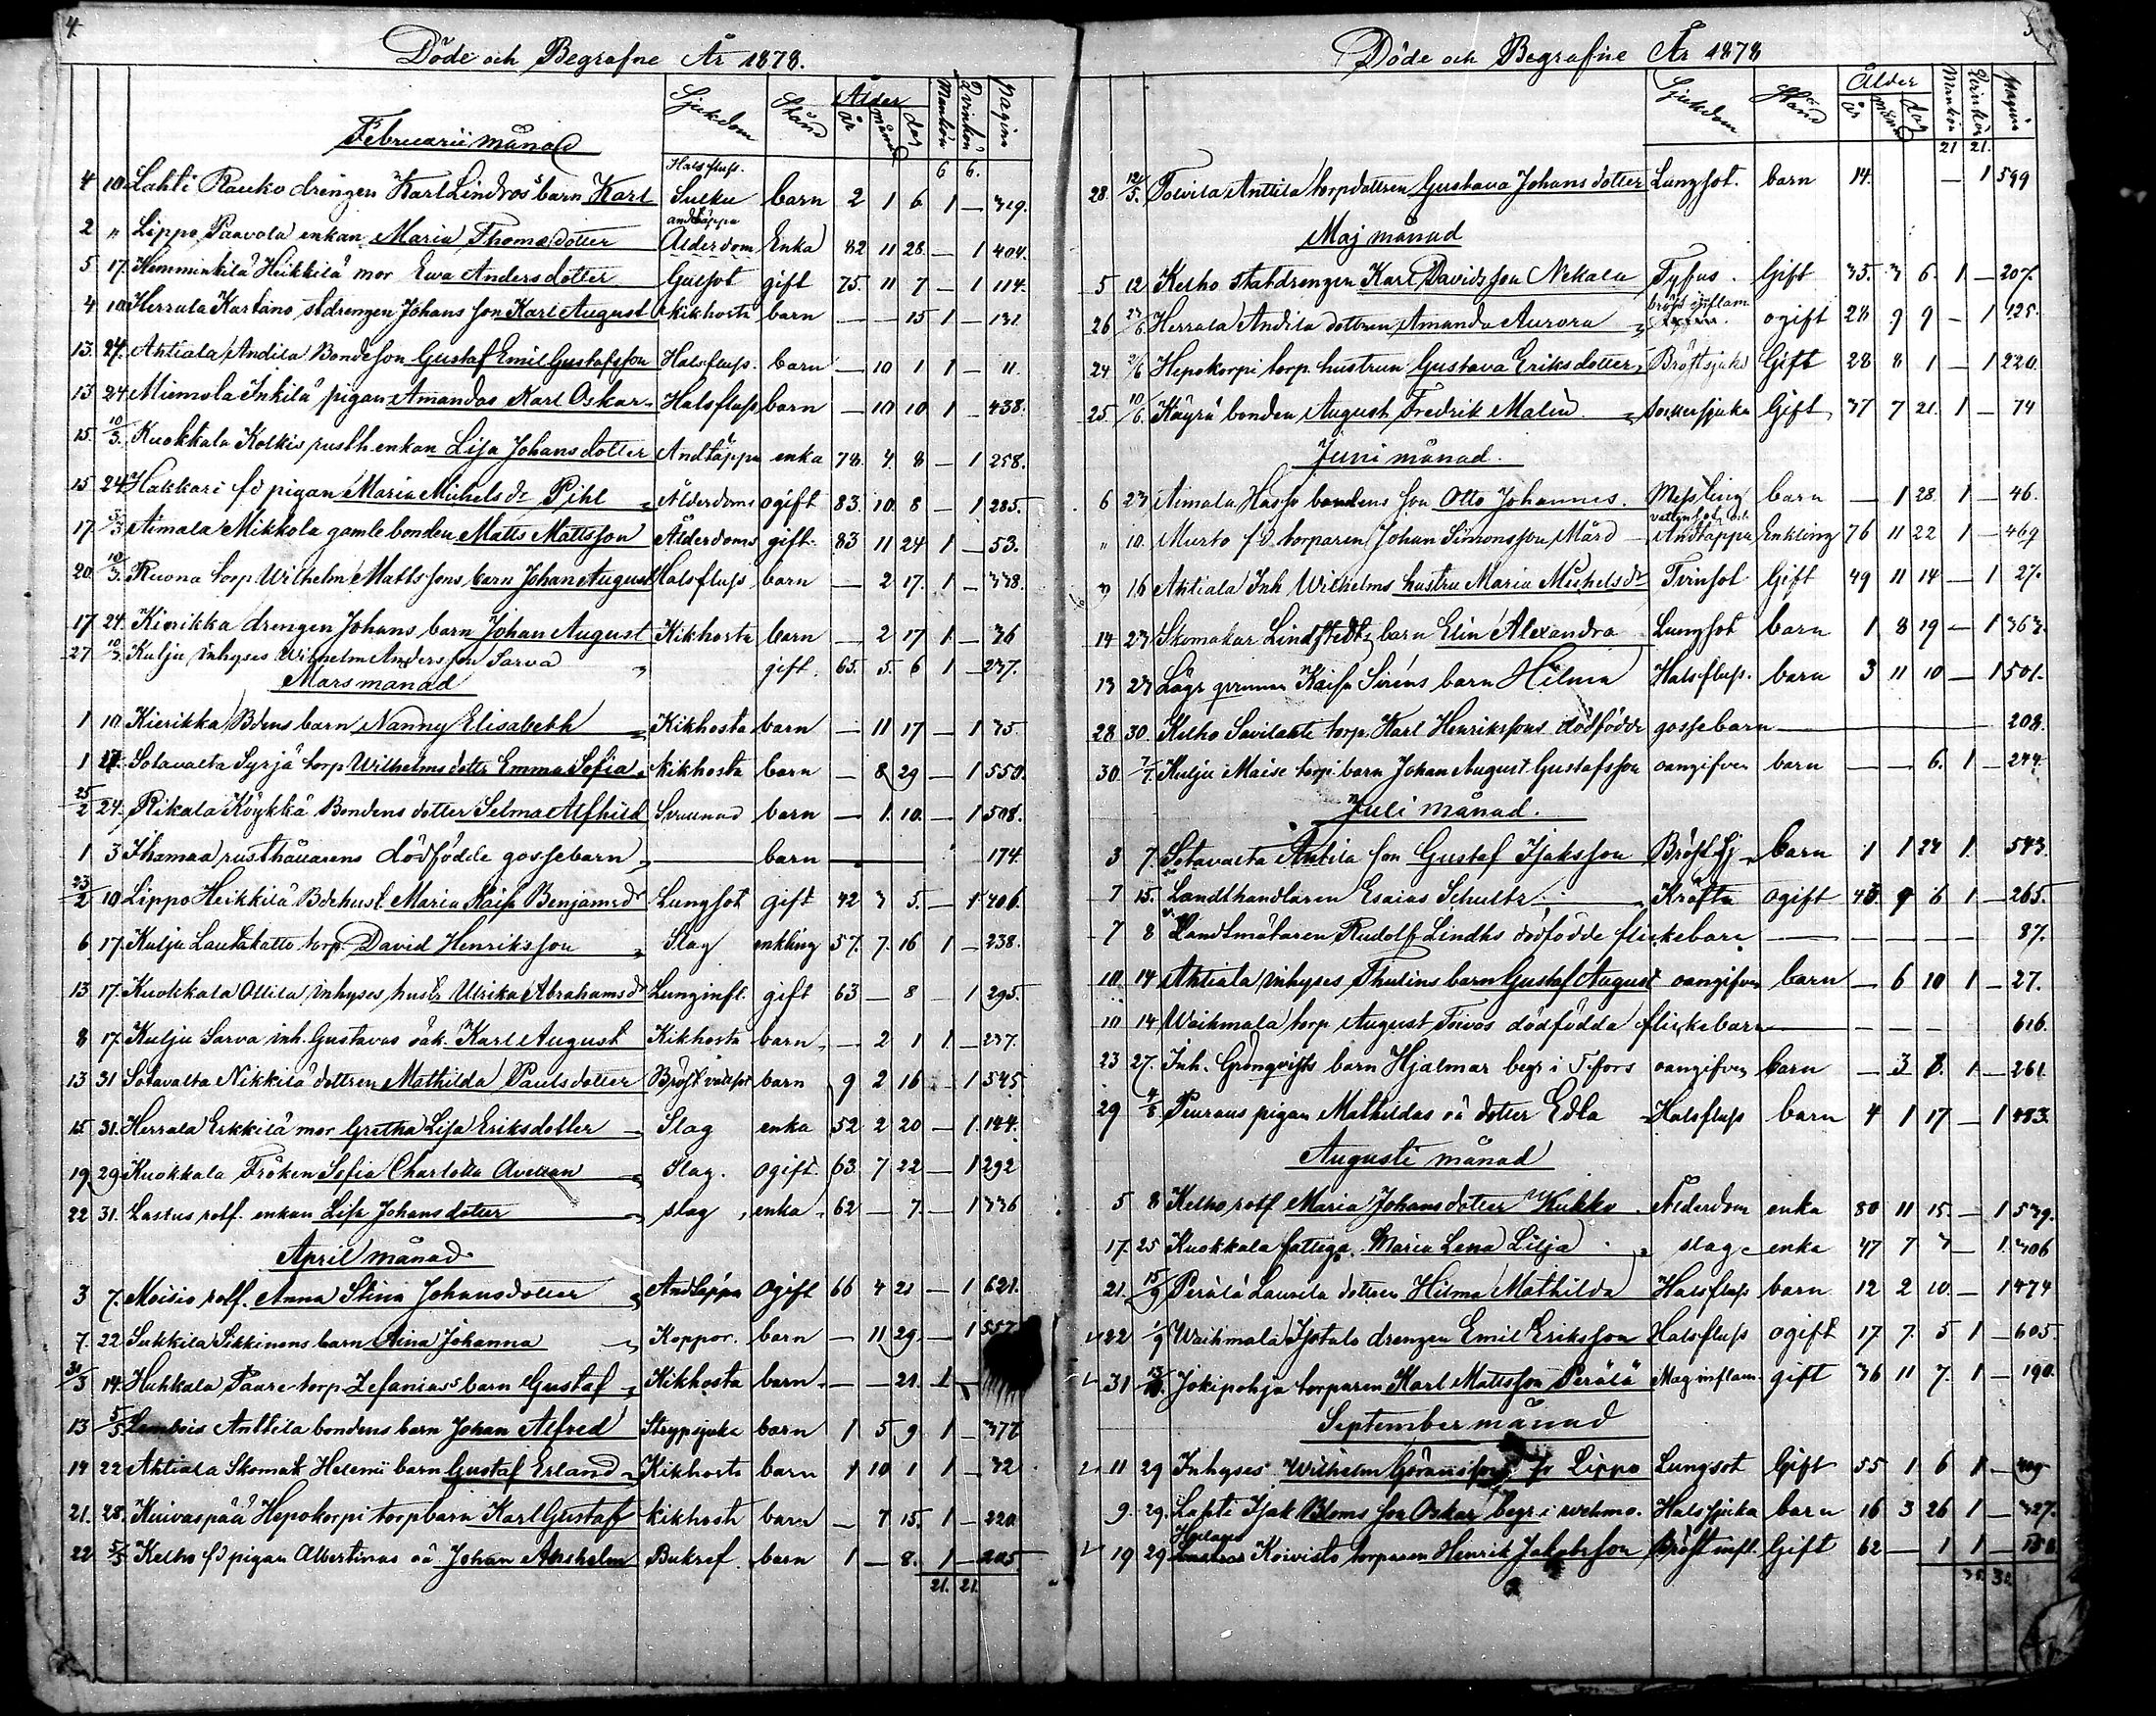 4.
Döde och Begrafne År 1878.
Sjukdom Stånd Ålder år månad dag Mankön Qvinkön pagina
Februarii månad
Halsfluss. 6 6.
4 10 Lahti Rauko drengen Karl Lindros barn Karl barn 2 1 6 1 — 319.
andtäppa
2 " Lippo Paavola enkan Maria Thomædotter Ålderdom Enka 82 11 28 — 1 404.
5 17 Hemminkilä Heikkilä mor Ewa Andersdotter Gulsot gift 75. 11 7 — 1 114.
4 10 Herrala Kartano stdrengen Johans son Karl August kikhosta barn — — 15 1 — 131
13. 24. Ahtiala Andila Bondeson Gustaf Emil Gustafsson Halsfluss. barn — 10 1 1 — 11.
13 24 Miemola Inkilä pigan Amandas Karl Oskar Halsfluss barn — 10 10 1 — 438.
15. 10/3. Kuokkala Kolkis rusth enkan Lisa Johansdotter Andtäppa enka 78. 4. 8 — 1 258.
15 24 Hakkari fd pigan Maria Michels dr Pihl Ålderdoms ogift 83. 10. 8 — 1 285.
17 3/3 Aimala Mikkola gamle bonden Matts Mattsson Ålderdoms gift. 83 11 24 1 — 53.
20. 10/3. Ruona torp Wilhelm Mattssons barn Johan August Halsfluss barn — 2 17. 1 — 338.
17 24. Kierikka drengen Johans barn Johan August Kikhosta barn — 2 17 1 — 36
27 10/3 Kulju inhyses Wilhelm Andersson Sarva " gift. 65. 5. 6 1 — 237.
Mars manad
1 10 Kierikka Bdens barn Nanny Elisabeth Kikhosta barn — 11 17 — 1 35.
1 17. Sotavalta Syrjä torp Wilhelms dottr Emma Sofia kikhosta barn — 8 29 — 1 550.
25/2 24. Rikala Köykkä Bondens dotter Selma Alfhild barn — 1. 10. — 1 508.
1 3 rusthållarens dödfödde gossebarn — barn — 174.
23/2 10 Lippo Heikkilä Bdehust Maria Kaisa Benjamsdr Lungsot gift 42 3 5. — 1 406.
6 17. Kulju Lautakatto torp. David Henriksson Slag enkling 57. 7. 16 1 — 238.
13 17. Kuokkala Ollila inhyses hustr Ulrika Abrahamsdr Lunginfl. gift 63 — 8 — 1 295.
8 17. Kulju Sarva inh. Gustavas oäk. Karl August Kikhosta barn — 2 1 1. — 237.
13 31 Sotavalta Nikkilä dottren Mathilda Paulsdotter barn 9 2 16 — 1 545.
15 31. Herrala Erkkilä mor Gretha Lisa Eriksdotter Slag enka 52 2 20 — 1. 144.
19 29 Kuokkala Fröken Sofia Charlotta Avellan Slag. ogift. 63 7 22 — 1 292
22 31. Lastus rotf. enkan Lisa Johansdotter slag enka 62 — 7 — 1 336
April månad
3 7. Moisio rotf. Anna Stina Johansdotter Andtäppa ogift 66 4 21 — 1 621.
7. 22 Sukkila Sikkinens barn Aina Johanna Koppor. barn — 11 29. — 1 557.
31/3 14. Huhkala Paare torp Zefanias's barn Gustaf Kikhosta barn — 21. 1
13 5/5 Lembois Anttila bondens barn Johan Alfred Strypsjuka barn 1 5 9 1 — 377
14 22 Ahtiala Skomak Helenii barn Gustaf Erland Kikhosta barn 1 10 1 1 — 32
21. 28. Kuivaspää Hepokorpi torpbarn Karl Gustaf kikhosta barn — 7 15. 1 — 220.
22 5/5 Kelho fd pigan Albertinas oä Johan Anshelm Bukref. barn 1 — 8. 1 — 205.
21. 21.
5
Döde och Begrafne År 1878
Sjukdom Stånd Ålder år månad dag Mankön Qvinkön pagina
21 21.
28. 12/5. Toivila Anttila torpdottren Gustava Johansdotter Lungsot. barn 14. — 1 599
Maj månad
5 12 Kelho statdrengen Karl Davidsson Nekala Tyfus. Gift 35. 3 6. 1. — 207.
26 Herrala Andila dottren Amanda Aurora bröst inflam. ogift 28 9 9 — 1 125.
24 Hepokorpi torp. hustrun Gustava Eriksdotter Bröstsjuka Gift 28 8 1 — 1 220.
25 10/6. Käyrä bonden August Fredrik Malin Gift 37 7 21. 1 — 74
Juni månad.
6 23 Aimala Hasso bondens son Otto Johannes. Messling barn — 1 28. 1 — 46.
vattusot och
" 10. Murto fd torparen Johan Simonsson Mård Andtäppa Enkling 76 11 22 1 — 469
9 16 Ahtiala Inh Wilhelms hustru Maria Michelsdr Tvinsot Gift 49 11 14 — 1 27.
14 23 Skomakar Lindstedts barn Elin Alexandra Lungsot barn 1 8 19 — 1 363.
13 23 Kaisa Siréns barn Hilma Halsfluss. barn 3 11 10 — 1 501.
28 30. Kelho Savilahti torp. Karl Henrikssons dödfödde gossebarn — 208.
30. 7/7. Kulju Maise torp. barn Johan August Gustafsson oangifven barn — — 6. 1 — 244.
Juli månad.
3 7. Sotavalta Antila son Gustaf Isaksson Bröst sj barn 1 1 24 1. 543.
7 15. Landthandlaren Esaias Schultz Kräfta ogift 43. 9 6 1 — 265.
7 8 Landtmätaren Rudolf Lindhs dödfödde flickebarn — 87.
10. 14 Ahtiala inhyses Thulins barn Gustaf August oangifven barn — 6 10 1 — 27.
10 14 Waihmala torp August Toivos dödfödda flickebarn — 616.
23 27. Inh. Grönqvists barn Hjalmar begr i T.fors oangifven barn — 3 8. 1 — 261
29 4/8 Peuraus pigan Mathildas oä dotter Edla Halsfluss barn 4 1 17 — 1 483.
Augusti månad
5 8 Kelho rotf Maria Johansdotter Kukko Ålderdom enka 80 11 15. — 1 539.
17. 25 Kuokkala fattiga. Maria Lena Lilja slag enka 47 7 3 — 1. 306
21. 15/9 Perälä Laurila dottren Hilma Mathilda Halsfluss barn 12 2 10. — 1 474
22 1/9 Waihmala Isotalo drengen Emil Eriksson Halsfluss ogift 17. 7. 5 1 — 605
31 Jokipohja torparen Karl Mattsson Perälä Maginflam gift 36 11 7. 1 — 190.
September månad
11 29 Inhyses Wilhelm Göransson fr Lippo Lungsot Gift 55 1 6 1 —
9. 29. Lahti Isak Bloms son Oskar begr i wehmo. Halssjuka barn 16 3 26 1 — 327.
19 29 Koivisto torparen Henrik Jakobsson Bröst infl. Gift 62 — 1 1 —